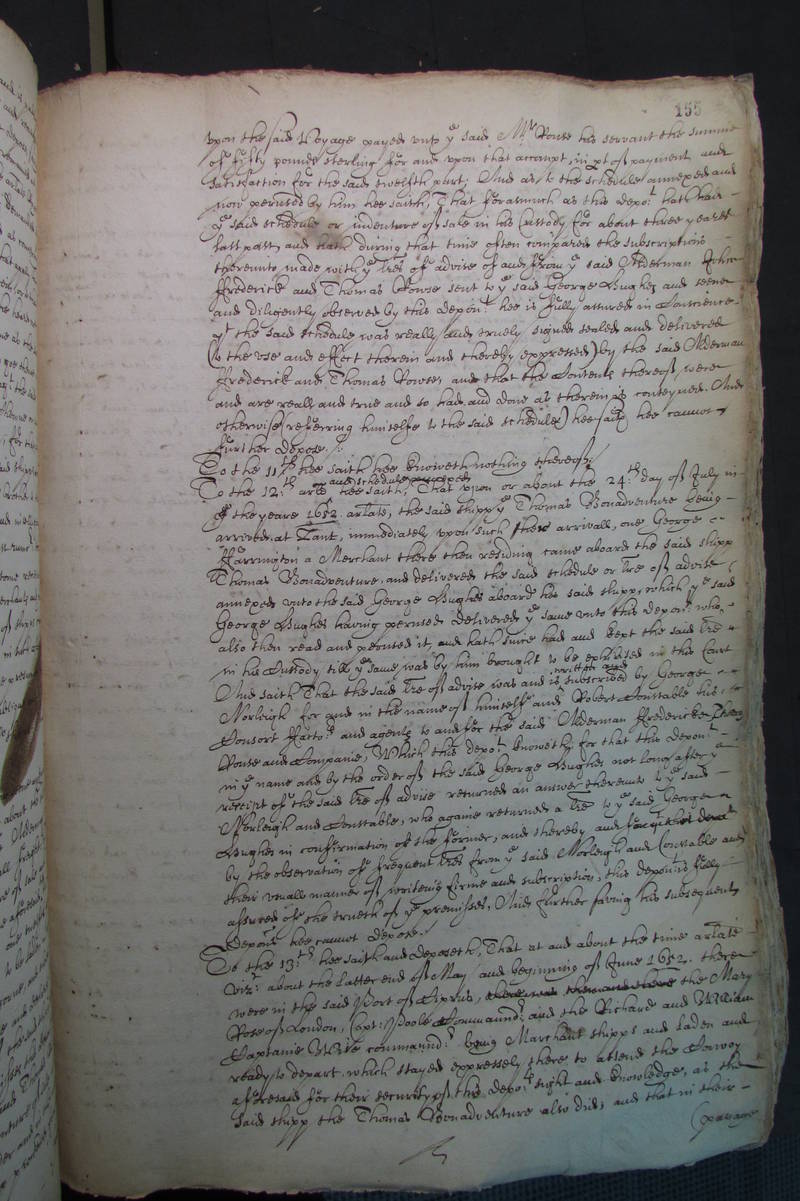 155
vpon the said Voyage payed vnto ye said Mr Rouse his servant the summe
of fifty pounds sterling for and vpon that accompt, in pt of payment and
satisfaction for the said twelfth part; And as to the schedule annexed and
now perused by him hee saith, That forasmuch as this depot hath had
ye said schedule or indenture of sale in his Custody for about three yeares
last past, and hath during that time often compared the subscriptions
thereunto made with ye lres of advise of and from ye said Alderman John
Frederick and Thomas Rowse sent to ye said George Hughes and seene
and diligently observed by this depont hee is fully assured in Conscience
yt the said schedule was really and truely signed sealed and delivered
(to the vse and effect therein and thereby expressed) by the said Alderman
Frederick and Thomas Rowse, and that the Contents thereof were
and are reall and true and so had and done as therein is conteyned. And
otherwise (referring himselfe to the said schedule) hee saith hee cannot
further depose /:
To the 11th hee saith hee knoweth nothing thereof:/
and schedule
To the 12:th arle hee saith, That vpon or about the 24:th day of July in
the yeare 1652. arlate, the said shipp ye Thomas Bonadventure being
arrived at Zant, immediately vpon such their arrivall, one George
Harrington a Merchant there then residing came aboard the said shipp
Thomas Bonadventure, and delivered the said schedule or lre of advise
annexed vnto the said George Hughes aboard his said shipp, which ye said
George Hughes having perused delivered ye same vnto this depont who
also then read and perused it, and hath since had and kept the said lre
in his Custody till ye same was by him brought to be exhibited in this Court
written and
And saith That the said lre of advise was and is subscribed by George
Norleigh for and in the name of himself and Robert Constable his
Consort Factors and agents to and for the said Alderman Frederick
Rouse and Companie, Which this depot knoweth, for that this depont
in ye name and by the order of the said George Hughes not long after ye
receipt of the said lre of advise returned an answer thereunto to ye said
Norleigh and Constable, who againe returned a lre to ye said George
Hughes in confirmation of the former, and thereby and
by the observation of frequent lres from ye said Norleigh and Constable and
their vsuall manner of writeing firme and subscription, this depont is fully
assured of the trueth of ye premisses, And further saving his subsequent
deposn hee cannot depose.
To the 13:th hee saith and deposeth, That at and about the time arlate
vizt about the latter end of May and beginning of June 1652. there
were in the said Port of Ciprus, the Mary
Rose of London, Capt: Poole Commandr: and the Richard and William
Captaine Wise commandr: being Merchant shipps and laden and
ready to depart. which stayed expressely there to attend the Convoy
aforesaid for their security, of this depots sight and knowledge, as the
said shipp the Thomas Bonadventure also did; and that in their